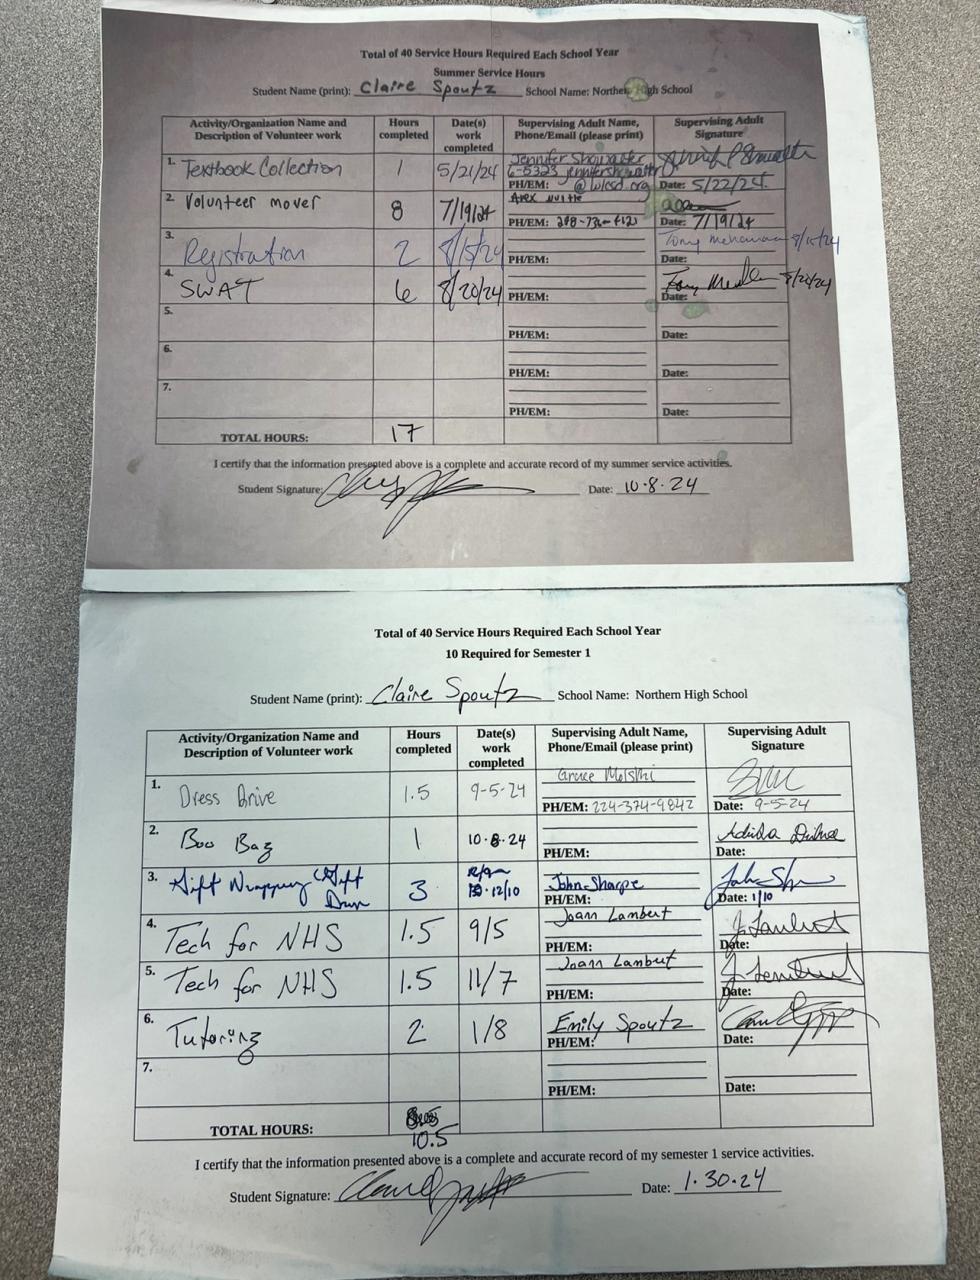 Total of 40 Service Hours Required Each School Year
Summer Service Hours
Student Name (print): Claire Spoutz School Name: Northern High School
Activity/Organization Name and Description of Volunteer work
Hours completed
Date(s) work completed
Supervising Adult Name, Phone/Email (please print)
Supervising Adult Signature
1. Textbook Collection 1 5/21/24 Jennifer Showalter
6-5323 jennifershowalter
PH/EM: @wlcsd.org Date: 5/22/24
2. Volunteer mover 8 7/19/24
PH/EM: Date: 7/19/24
3. Registration 2 8/15/24 Tony 8/15/24
PH/EM: Date:
4. SWAT 6 8/20/24 Tony 8/20/24
PH/EM: Date:
5.
PH/EM: Date:
6.
PH/EM: Date:
7.
PH/EM: Date:
TOTAL HOURS: 17
I certify that the information presented above is a complete and accurate record of my summer service activities.
Student Signature: Date: 10·8·24
Total of 40 Service Hours Required Each School Year
10 Required for Semester 1
Student Name (print): Claire Spoutz School Name: Northern High School
Activity/Organization Name and Description of Volunteer work
Hours completed
Date(s) work completed
Supervising Adult Name, Phone/Email (please print)
Supervising Adult Signature
1. Dress Drive 1.5 9-5-24 Grace
PH/EM: 224-374-9842 Date: 9-5-24
2. Boo Bag 1 10·8·24
PH/EM: Date:
3. Gift Wrapping Gift 3 12/10 John Sharpe
PH/EM: Date: 1/10
4. Tech for NHS 1.5 9/5 Joann Lambert J. Lambert
PH/EM: Date:
5. Tech for NHS 1.5 11/7 Joann Lambert
PH/EM: Date:
6. Tutoring 2 1/8 Emily Spoutz
PH/EM: Date:
7.
PH/EM: Date:
TOTAL HOURS: 10.5
I certify that the information presented above is a complete and accurate record of my semester 1 service activities.
Student Signature: Date: 1·30·24